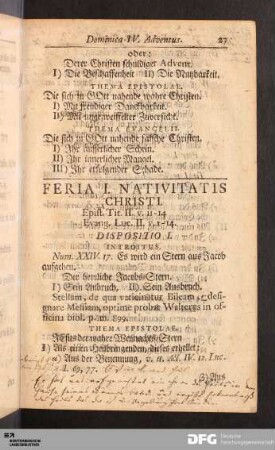 Dominica IV. Adventus. 27
oder:
Derer Christen schuldiger Advent.
I) Die Beschaffenheit II) Die Nutzbarkeit.
THEMA EPISTOLAE.
Die sich zu GOtt nahende wahre Christen.
I) Mit freudiger Danckbarkeit.
II) Mit ungezweiffelter Zuversicht.
THEMA EVANGELII.
Die sich zu GOtt nahende falsche Christen.
I) Ihr äusserlicher Schein.
II) Ihr innerlicher Mangel.
III) Ihr erfolgender Schade.
FERIA I. NATIVITATIS
CHRISTI.
Epist. Tit. II. v. 11-14
Evang. Luc. II. v. 1-14.
DISPOSITIO I.
INTROITUS.
Num. XXIV. 17. Es wird ein Stern aus Jacob
aufgehen.
Der herrliche Jacobs-Stern.
I) Sein Anbruch. II) Sein Ausbruch.
Stellam, de qua vaticinatur Bileam, designare
Messiam, optime probat Waltherus in officina
bibl. p. m. 899.
THEMA EPISTOLAE.
JEsus der wahre Weihnachts-Stern
I) Als einen Heilbringenden, dieses erhellet:
a) Aus der Benennung, v. 11. Act. IV. 12. Luc.
I. 69. 77.
Aus
DFG Deutsche
Forschungsgemeinschaft